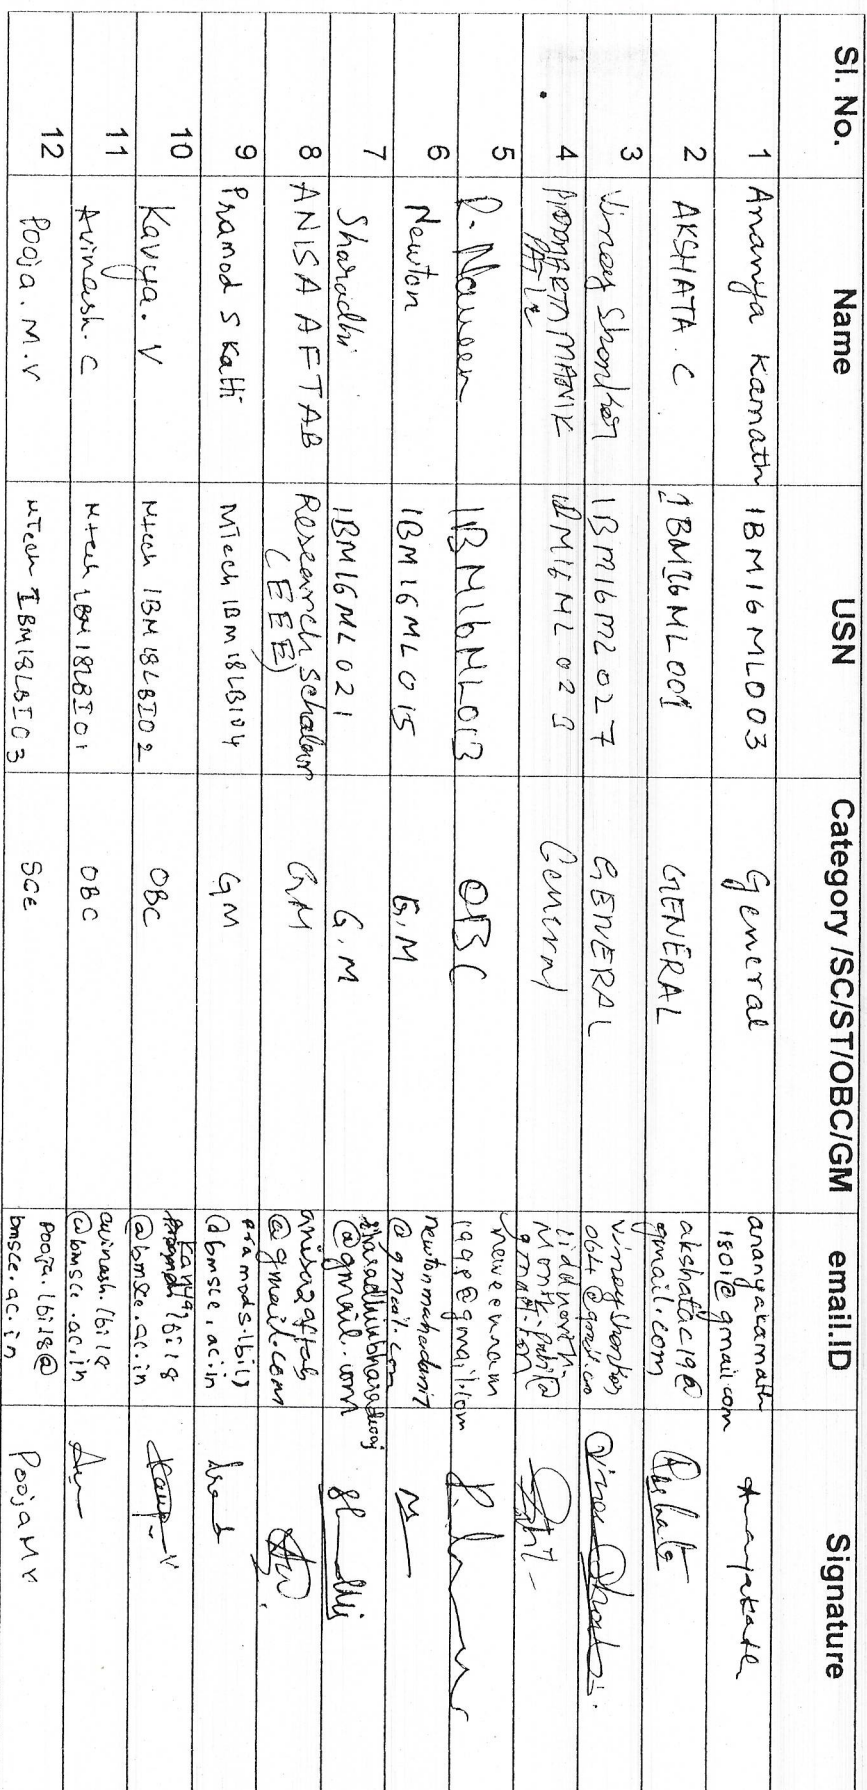 Sl. No. Name USN Category /SC/ST/OBC/GM email.ID Signature
1 Ananya Kamath 1BM16ML003 General ananyakamath
1801@gmail.com
2 AKSHATA.C 1BM16ML001 GENERAL akshatac19@
gmail.com
3 Vinay Shankar 1BM16ML027 GENERAL vinayshankar
064@gmail.co
4 MANIK
PATIL General
5 P. Naveen 1BM16ML013 OBC naveennam
1998@gmail.com
6 Newton 1BM16ML015 G.M
@gmail.com
7 Sharadhi 1BM16ML021 G.M
@gmail.com
8 ANISA AFTAB Research Scholar GM anisa2aftab
(EEE) @gmail.com
9 Pramod S Katti MTech 1BM18LBI04 GM
@bmsce.ac.in
10 Kavya. V Mtech 1BM18LBI02 OBC
@bmsce.ac.in
11 Avinash. C Mtech 1BM18LBI01 OBC avinash.lbi18
@bmsce.ac.in
12 Pooja. M. V MTech 1BM18LBI03 pooja.lbi18@ Pooja M V
bmsce.ac.in